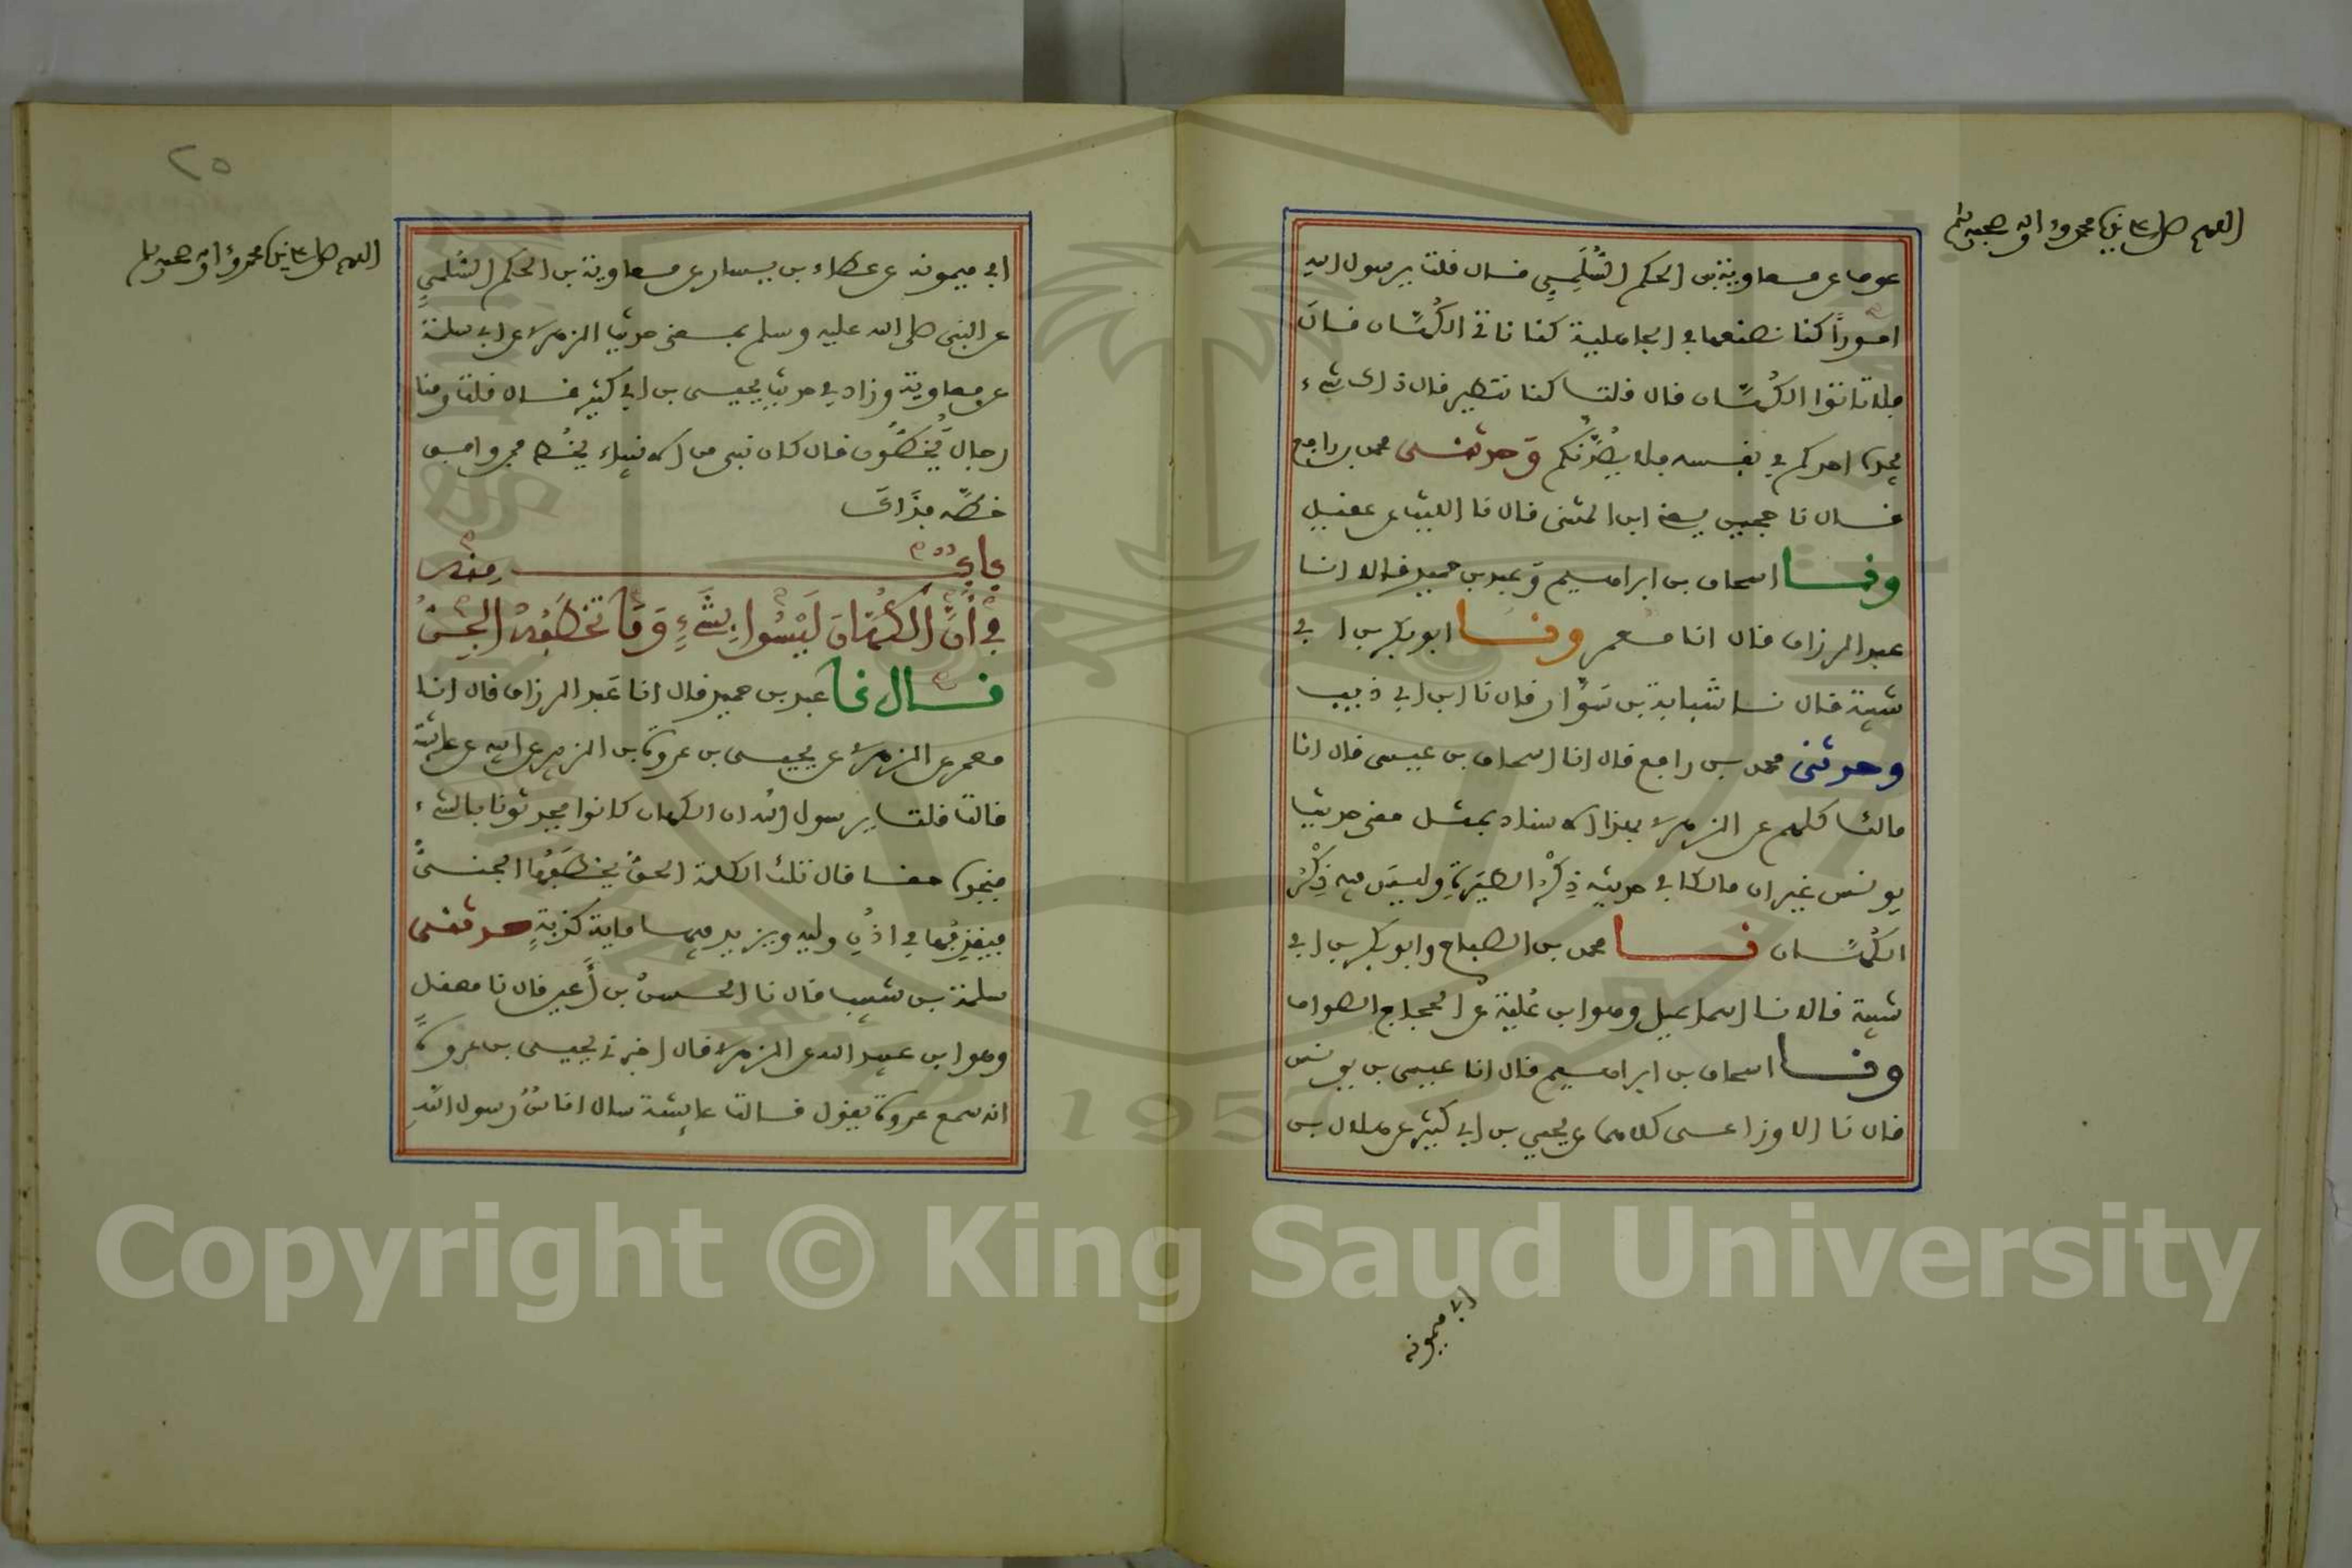 اللهم صل على نبينا محمد وءاله وصحبه وسلم
عوف عن معاوية بن الحكم السُّلَمِيِ فال فلت يرسول الله
امورًا كنا نصنعها في الجاهلية كنا ناتي الكُهَّان فال
فلا تاتوا الكُهَّان فال فلت كنا نتطير فال ذاك شيء
يجده احدكم في نفسه فلا يصُدَّنكم وَحدثني محمد بن رافع
فال نا حجين يعني ابن المثنى فال نا الليث عن عفيل
ونا اسحاق بن ابراهيم وَعبد بن حميد فالا انا
عبد الرزاق فال انا معمر ونا ابو بكر بن ابي
شيبة فال نا شَبابة بن سَوَّار فال نا ابن ابي ذيب
وحدثني محمد بن رافع فال انا اسحاق بن عيسى فال انا
مالك كلهم عن الزهري بهذا الاسناد بمثل معنى حديث
يونس غير ان مالكا في حديثه ذِكْرُ الطِّيَرَةِ وليس فيه ذِكْرُ
الكُهَّان نا محمد بن الصباح وابو بكر بن ابي
شيبة فالا نا اسماعيل وهو ابن عُلَيَّة عن الحجاج الصواف
ونا اسحاق بن ابراهيم فال انا عيسى بن يونس
فال نا الاوزاعي كلاهما عن يحيى بن ابي كثير عن هلال بن
ابي ميمونه
٢٥
اللهم صل على نبينا محمد وءاله وصحبه وسلم
ابي ميمونه عن عطاء بن يسار عن معاوية بن الحكم السُّلَميِ
عن النبي صلى الله عليه وسلم بمعنى حديث الزهري عن ابي سلمة
عن معاوية وزاد في حديث يحيى بن ابي كثير فال فلت ومنا
رجالٌ يَّخُطُّون فال كان نبي من الانبياء يخُط فمن وافق
خطَّه فذَاكَ
بابٌ منه
فِي أَنَّ الْكُهَّانَ لَيْسُوا بِشَيْءٍ وَمَا تَخْطَفُهُ الْجِنُّ
فال نا عبد بن حميد فال انا عَبد الرزاق فال انا
معمر عن الزهري عن يحيى بن عروة بن الزبير عن ابيه عن عايشة
فالت فلت يرسول الله ان الكهان كانوا يحدثونا بالشيء
فنجده حفا فال تلك الكلمة الحقُّ يخطَفُها الجنيُّ
فيفذِفُها في اذُنِ وليه ويزيد فيها ماية كَذبةٍ حدثني
سلمة بن شبيب فال نا الحسنُ بن أَعين فال نا معفل
وهو ابن عبيد الله عن الزهري فال اخبرني يحيى بن عروةَ
انه سمع عروة يفول فالت عايشة سال اناسٌ رسول اللهِ
Copyright © King Saud University
1957